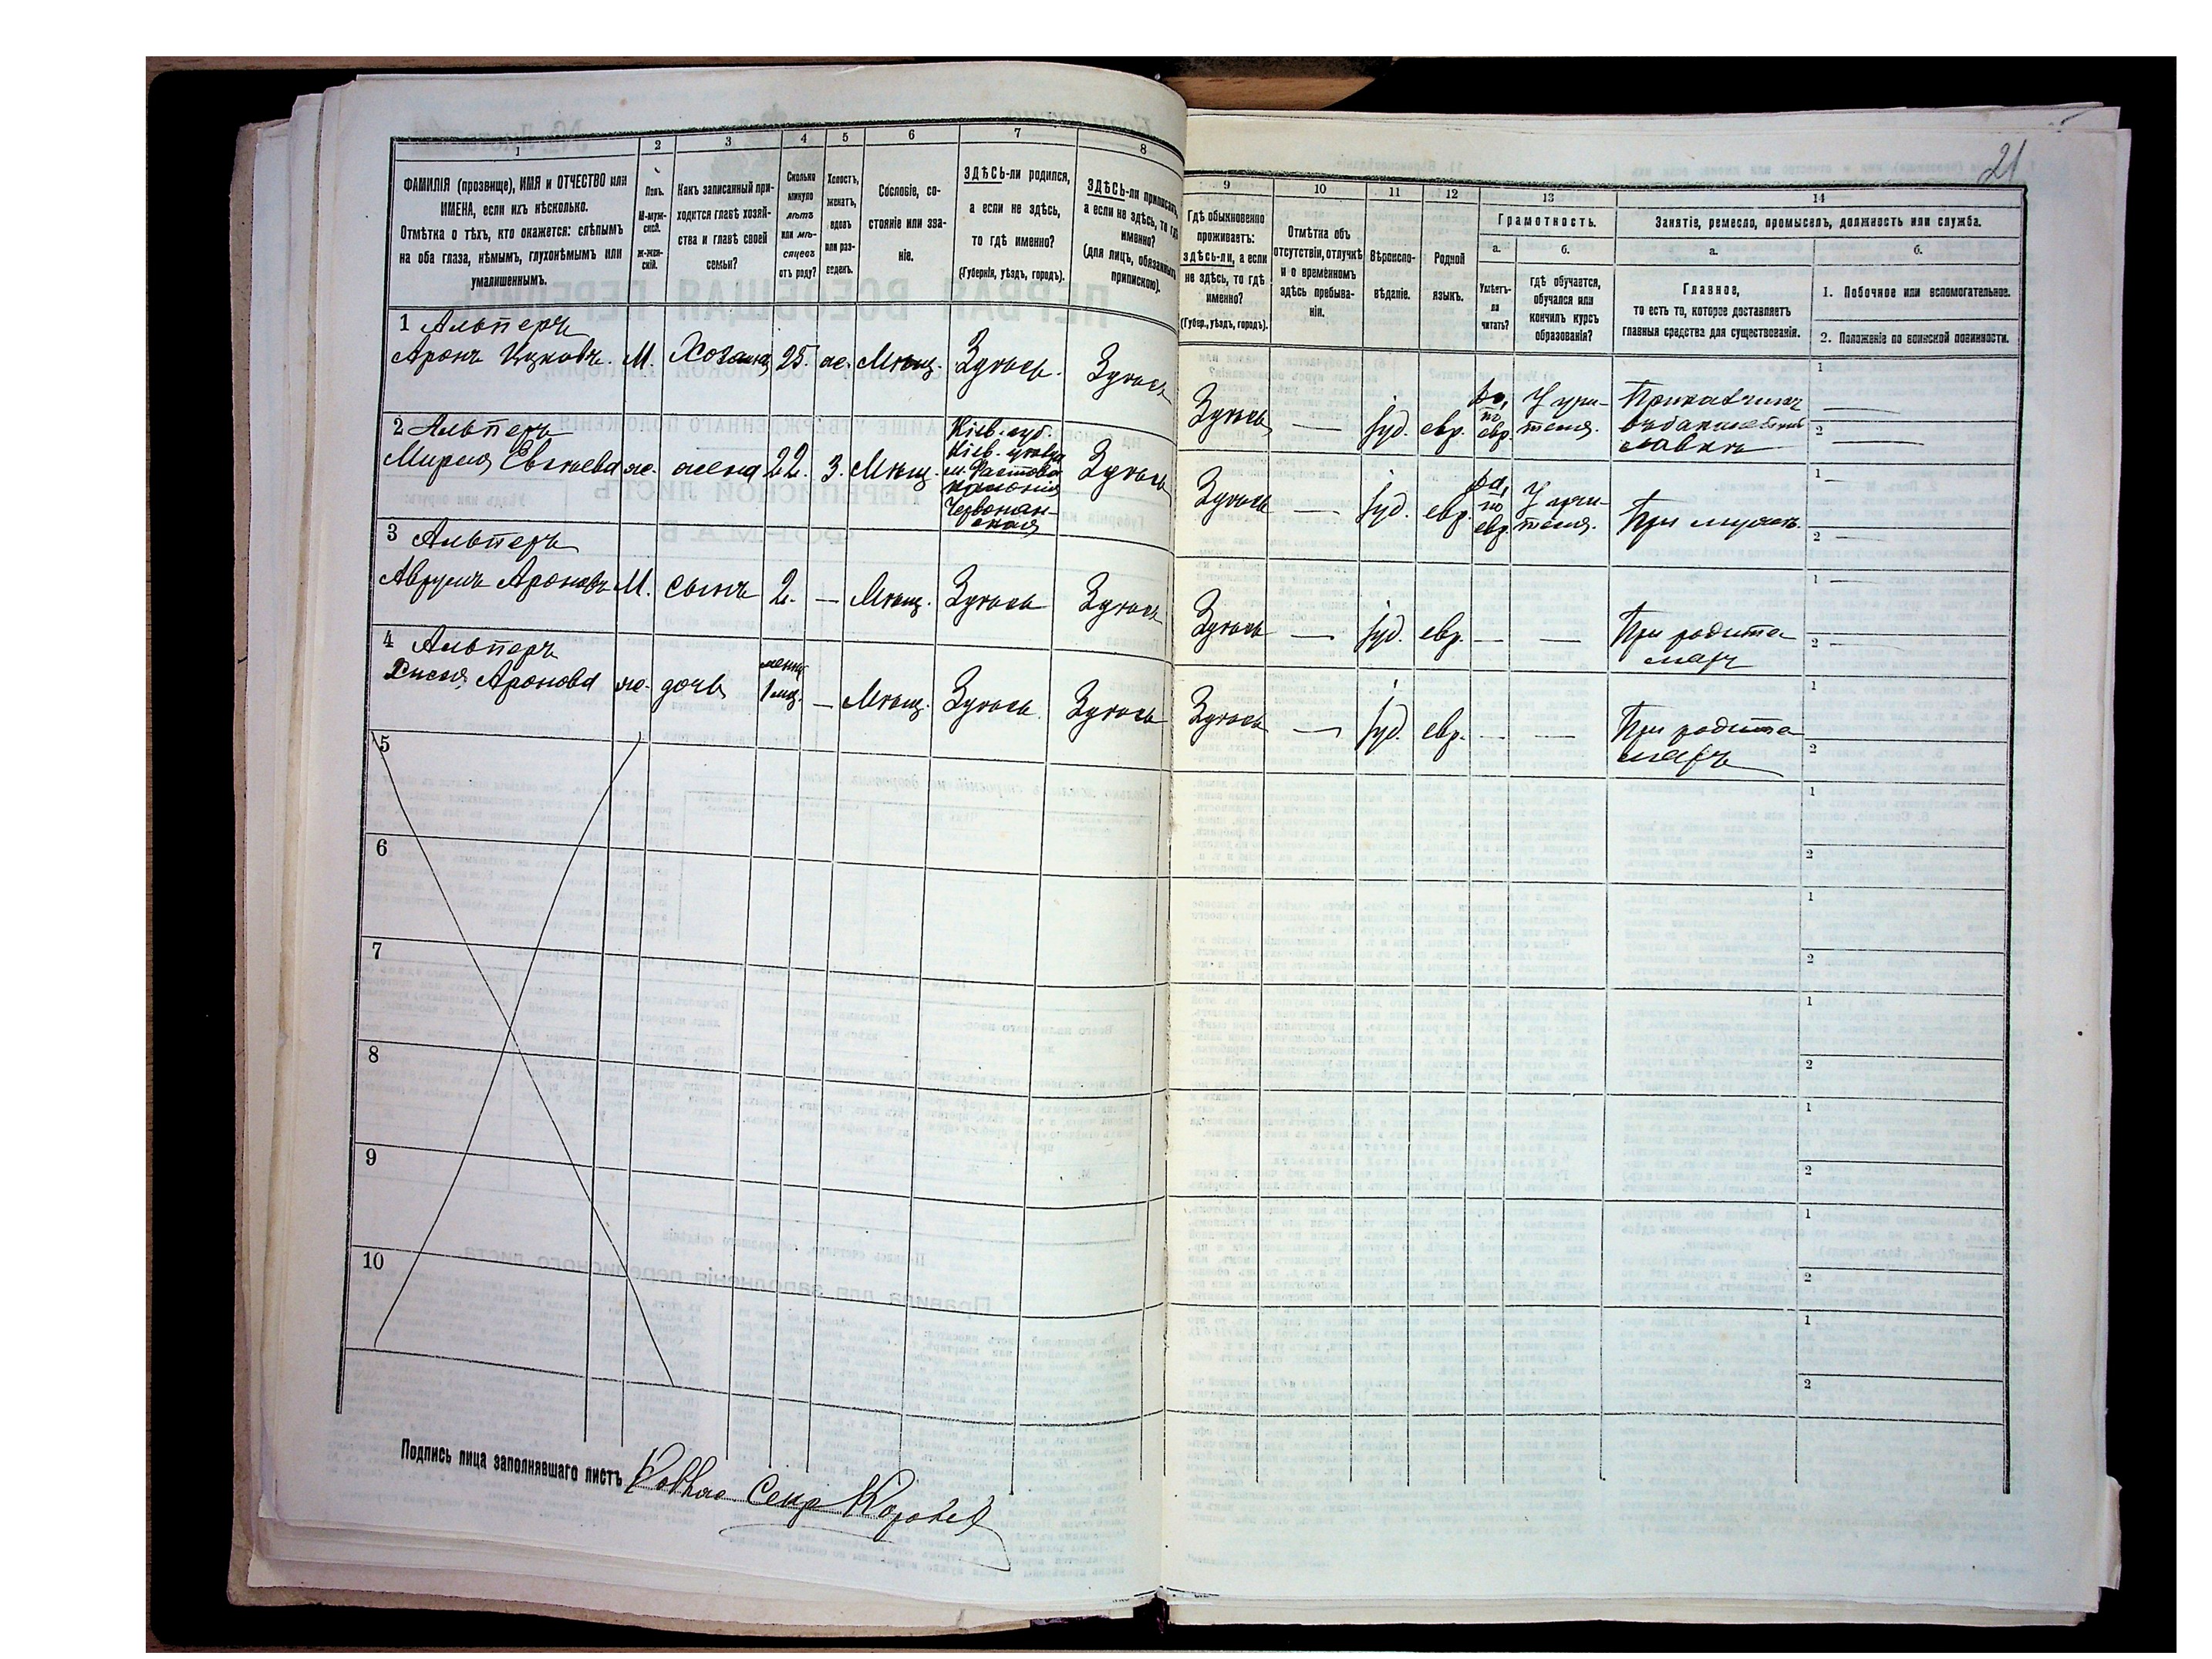 21
1
2
3
4
5
6
7
8
9
10
11
12
13
14
ФАМИЛІЯ (прозвище), ИМЯ и ОТЧЕСТВО или
ИМЕНА, если ихъ нѣсколько.
Отмѣтка о тѣхъ, кто окажется: слѣпымъ
на оба глаза, нѣмымъ, глухонѣмымъ или
умалишеннымъ.
Полъ.
М-муж-
ской.
ж-жен-
скій.
Какъ записанный при-
ходится главѣ хозяй-
ства и главѣ своей
семьи?
Сколько
минуло
лѣтъ
или мѣ-
сяцевъ
отъ роду?
Холостъ,
женатъ,
вдовъ
или раз-
веденъ.
Сословіе, со-
стояніе или зва-
ніе.
ЗДѢСЬ-ли родился,
а если не здѣсь,
то гдѣ именно?
(Губернія, уѣздъ, городъ).
ЗДѢСЬ-ли приписанъ,
а если не здѣсь, то гдѣ
именно?
(для лицъ, обязанныхъ
припискою).
Гдѣ обыкновенно
проживаетъ:
здѣсь-ли, а если
не здѣсь, то гдѣ
именно?
(Губер., уѣздъ, городъ).
Отмѣтка объ
отсутствіи, отлучкѣ
и о временномъ
здѣсь пребыва-
ніи.
Вѣроиспо-
вѣданіе.
Родной
языкъ.
Грамотность.
а.
б.
Умѣетъ-
ли
читать?
гдѣ обучается,
обучался или
кончилъ курсъ
образованія?
Занятіе, ремесло, промыселъ, должность или служба.
а.
б.
Главное,
то есть то, которое доставляетъ
главныя средства для существованія.
1. Побочное или вспомогательное.
2. Положеніе по воинской повинности.
1 Альперъ
Аронъ Ицковъ. М. Хозяинъ 25. ж. Мѣщ. Здѣсь. Здѣсь
Здѣсь — іуд. евр. да, по евр. У учи-теля. Прикащикъ
въ бакалейной
лавкѣ
1
2
2 Альперъ
Мирля Евнаева ж. жена 22. З. Мѣщ. Кіев. губ. Здѣсь
Кіев. уѣзда
м. Фастовъ
колонія
Червонян-
ская
Здѣсь — іуд. евр. да, по евр. У учи-теля. При мужѣ.
1
2
3 Альперъ
Аврумъ Ароновъ М. сынъ 2. — Мѣщ. Здѣсь Здѣсь
Здѣсь — іуд. евр. — — При родите
ляхъ
1
2
4 Альперъ
Аронова ж. дочь менѣе
1 мѣс. — Мѣщ. Здѣсь. Здѣсь
Здѣсь — іуд. евр. — — При родите
ляхъ
1
2
5
1
2
6
1
2
7
1
2
8
1
2
9
1
2
10
1
2
Подпись лица заполнявшаго листъ